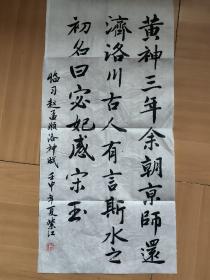 黄神三年余朝京師還
濟洛川古人有言斯水之
初名曰宓妃感宋玉
临习赵孟頫洛神赋 壬申年夏紫江